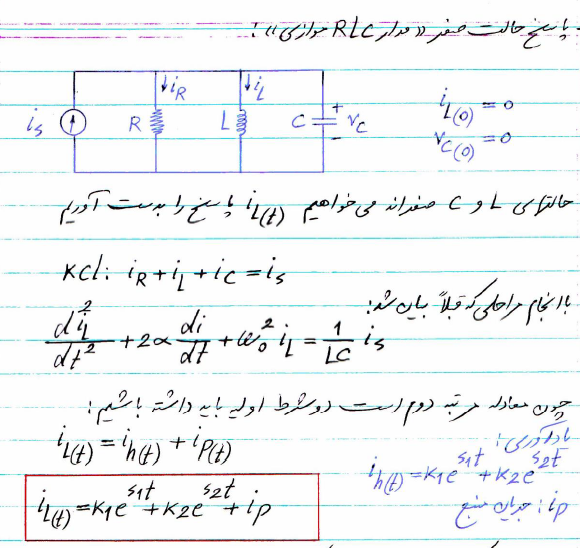 پاسخ حالت صفر «مدار RLC موازی»:
i_s R ↓i_R L ↓i_L C + v_C −
i_L(0) = 0
v_C(0) = 0
حالتهای L و C صفراند می‌خواهیم i_L(t) پاسخ را بدست آوریم
KCL: i_R + i_L + i_C = i_s
با انجام مراحلی که قبلاً بیان شد:
d²i_L/dt² + 2α di/dt + ω₀² i_L = 1/LC i_s
چون معادله مرتبه دوم است دو شرط اولیه باید داشته باشیم:
i_L(t) = i_h(t) + i_p(t)
یادآوری:
i_h(t) = K1e^{s1t} + K2e^{s2t}
i_p: جریان منبع
i_L(t) = K1e^{s1t} + K2e^{s2t} + i_p